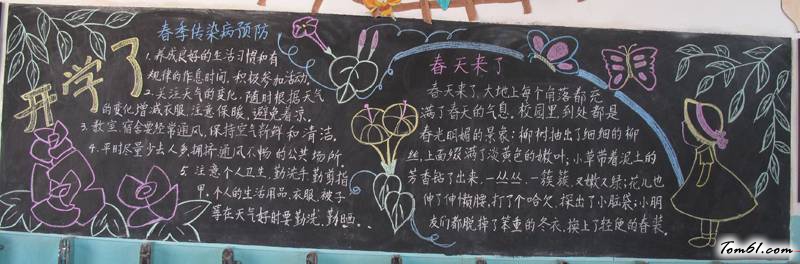 开学了
春季传染病预防
1.养成良好的生活习惯和有
规律的作息时间,积极参加活动.
2.关注天气的变化,随时根据天气
的变化增减衣服,注意保暖,避免着凉.
3.教室、宿舍要经常通风,保持空气新鲜和清洁.
4.平时尽量少去人多拥挤通风不畅的公共场所.
5.注意个人卫生,勤洗手,勤剪指
甲,个人的生活用品、衣服、被子
等在天气好时要勤洗,勤晒...
春天来了
春天来了,大地上每个角落都充
满了春天的气息。校园里到处都是
春光明媚的景象:柳树抽出了细细的柳
丝,上面缀满了淡黄色的嫩叶;小草带着泥土的
芳香钻了出来,一丛丛,一簇簇,又嫩又绿;花儿也
伸了伸懒腰,打了个哈欠,探出了小脑袋;小朋
友们都脱掉了笨重的冬衣,换上了轻便的春装。
Tom61.com